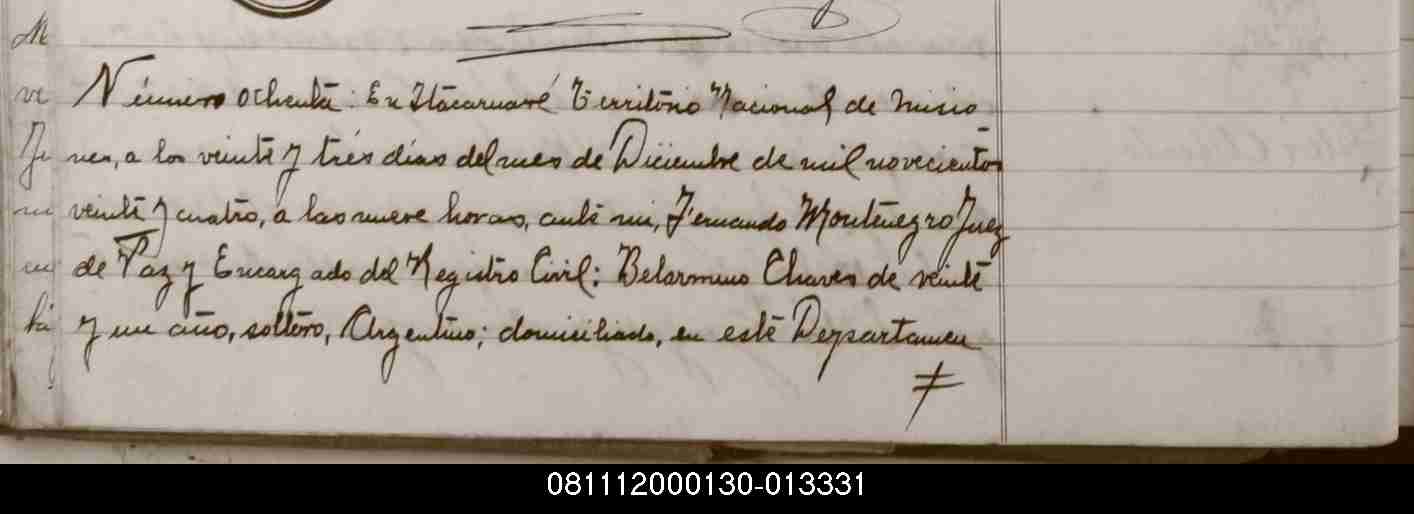 Número ochenta: En Itacaruaré Territorio Nacional de Misio-
nes, a los veinte y tres días del mes de Diciembre de mil novecientos
veinte y cuatro, a las nueve horas, ante mi, Fernando Montenegro Juez
de Paz y Encargado del Registro Civil: Belarmino Chaves de veinte
y un año, soltero, Argentino; domiciliado, en este Departamen
081112000130-013331